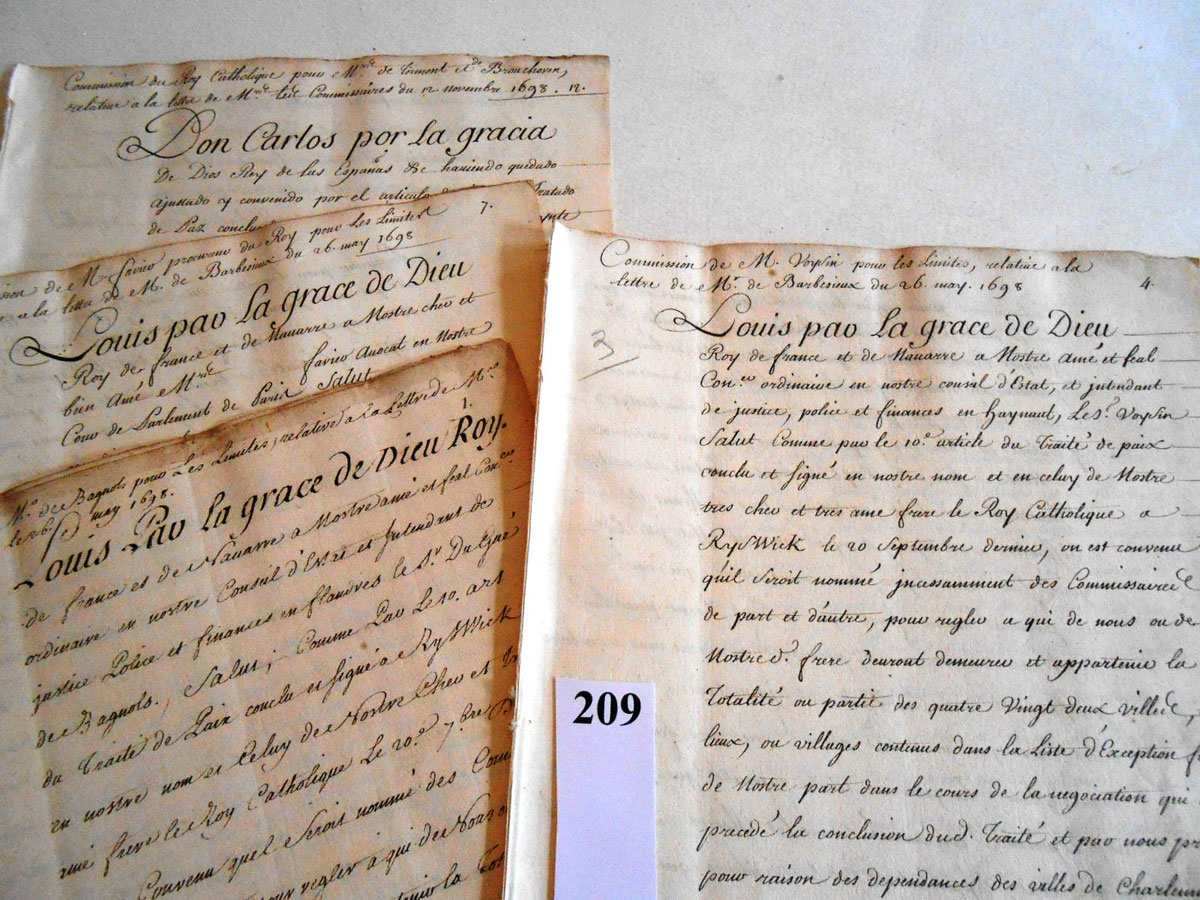 Commission du Roy Catholique pour Mrs. de Tormont et de Brouchovin,
relative a la lettre de Mrs. les Commissaires du 12 novembre 1698. 12.
Don Carlos por La gracia
De Dios Rey de las Españas &c haviendo quedado
ajustado y convenido por el articulo Tratado
de Paz
de M. farico procureur du Roy pour Les Limites 7.
a la lettre de M. de Barbesieux du 26. may 1698
Louis par La grace de Dieu
Roy de france et de Navarre a Nostre cher et
bien Amé Mre. farico Avocat en Nostre
Cour de Parlement de Paris Salut
Mr. de Bagnols pour Les Limites, relative a la Lettre de Mr.
le 26 may 1698. 1.
Louis Par La grace de Dieu Roy.
de france et de Navarre a Nostre amé et feal Coner
ordinaire en nostre Conseil d'Estat et Intendant de
justice Police et finances en flandres le Sr. Dugué
de Bagnols, Salut; Comme Par Le 10. art
du Traité de Paix conclu et signé a RysWick
en nostre nom et Celuy de Nostre Cher et
amé frere le Roy Catholique Le 20e. 7.bre
Convenu quel Seroit nommé des
pour regler a qui de Nous
la
Commission de M. Voysin pour les Limites, relative a la
lettre de Mr. de Barbesieux du 26. may. 1698 4.
3
Louis par La grace de Dieu
Roy de france et de Navarre a Nostre Amé et feal
Coner ordinaire en nostre conseil d'Estat, et jntendant
de justice, police et finances en Haynaut, Le Sr. Voysin
Salut Comme par le 10e. article du Traité de paix
conclu et signé en nostre nom et en celuy de Nostre
tres cher et tres ame frere le Roy Catholique a
RysWick le 20 Septembre dernier, on est convenu
qu'il Seroit nommé jncessamment des Commissaires
de part et d'autre, pour regler a qui de nous ou de
Nostre d. frere devront demeurer et appartenir la
Totalité ou partie des quatre Vingt deux villes,
lieux, ou villages contenus dans la Liste d'Exception
de Nostre part dans le cours de la negociation qui
precedé la conclusion dud. Traité et par nous
pour raison des dependances des villes de
209